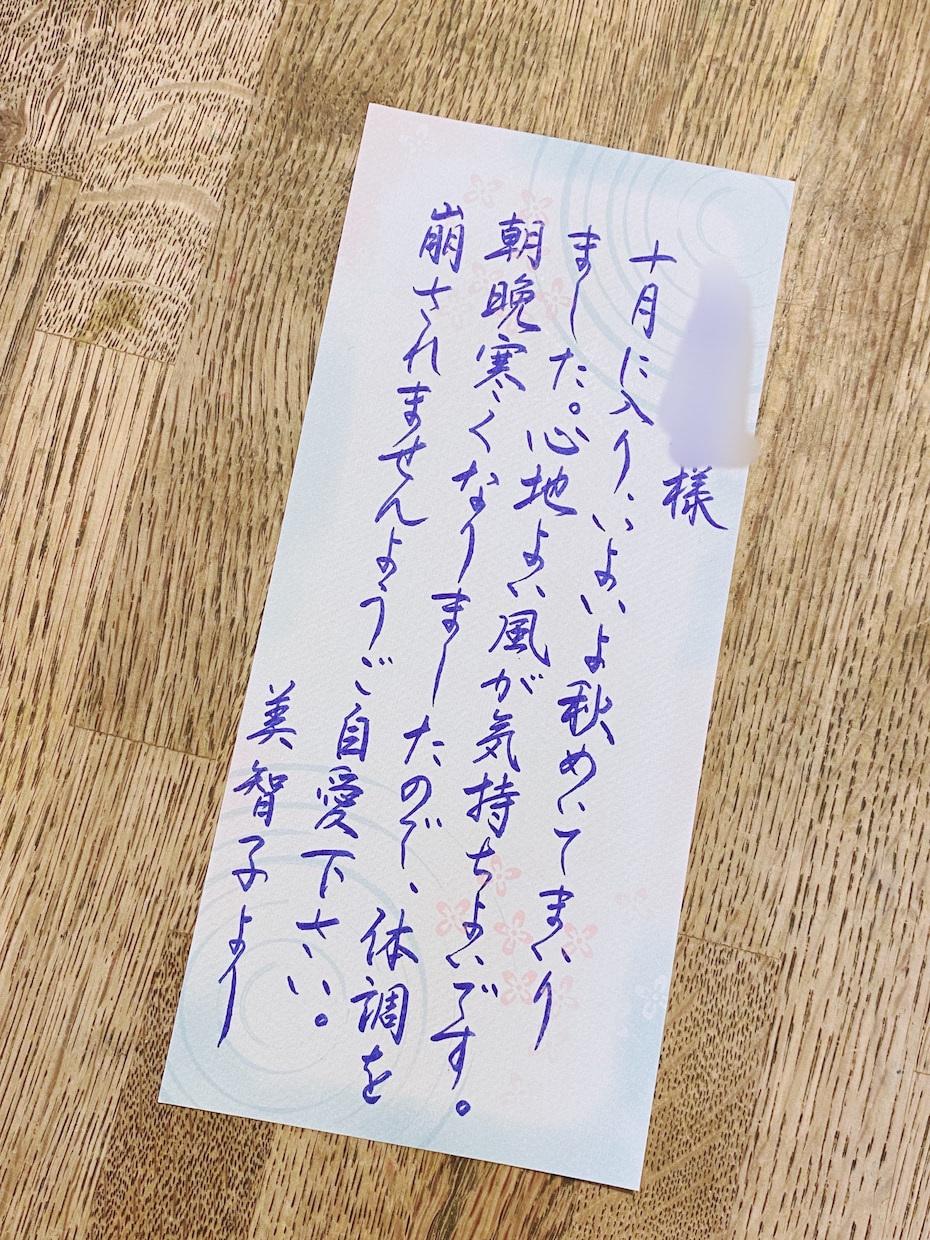 様
十月に入り、いよいよ秋めいてまいり
ました。心地よい風が気持ちよいです。
朝晩寒くなりましたので、体調を
崩されませんようご自愛下さい。
美智子より